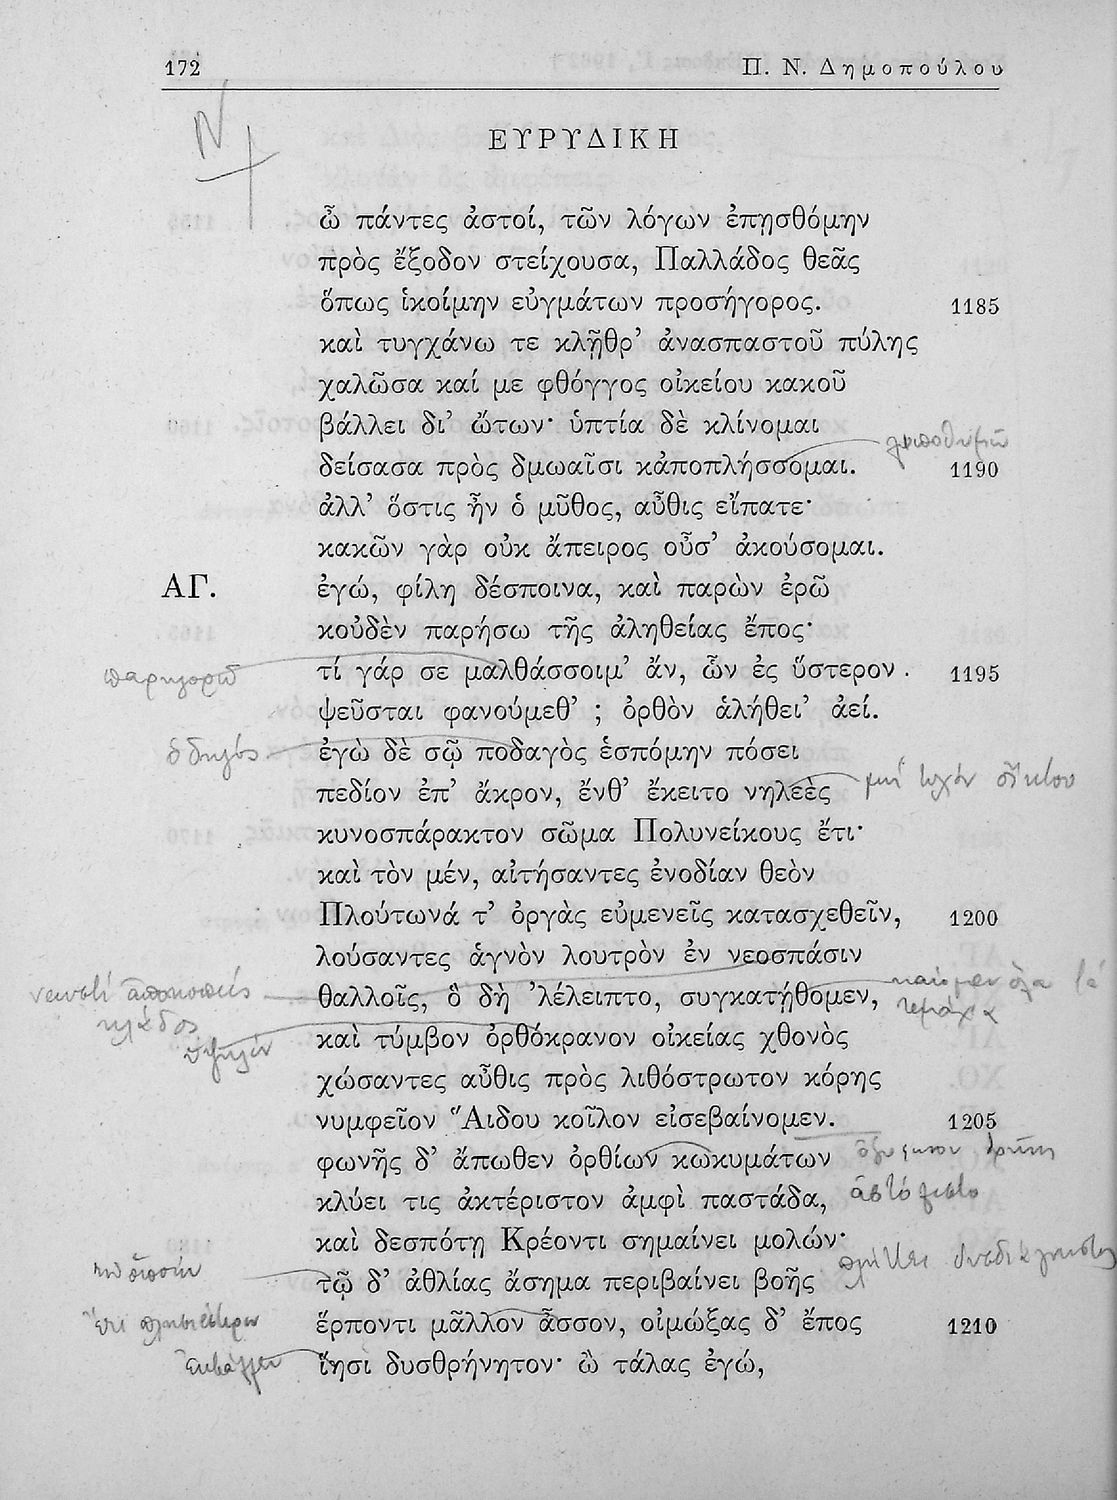 172
Π. Ν. Δημοπούλου
ΕΥΡΥΔΙΚΗ
ὦ πάντες ἀστοί, τῶν λόγων ἐπῃσθόμην
πρὸς ἔξοδον στείχουσα, Παλλάδος θεᾶς
ὅπως ἱκοίμην εὐγμάτων προσήγορος. 1185
καὶ τυγχάνω τε κλῇθρ’ ἀνασπαστοῦ πύλης
χαλῶσα καί με φθόγγος οἰκείου κακοῦ
βάλλει δι’ ὤτων· ὑπτία δὲ κλίνομαι
λιποθυμῶ
δείσασα πρὸς δμωαῖσι κἀποπλήσσομαι. 1190
ἀλλ’ ὅστις ἦν ὁ μῦθος, αὖθις εἴπατε·
κακῶν γὰρ οὐκ ἄπειρος οὖσ’ ἀκούσομαι.
ΑΓ. ἐγώ, φίλη δέσποινα, καὶ παρὼν ἐρῶ
κοὐδὲν παρήσω τῆς ἀληθείας ἔπος·
παρηγορῶ τί γάρ σε μαλθάσσοιμ’ ἄν, ὧν ἐς ὕστερον 1195
ψεῦσται φανούμεθ’ ; ὀρθὸν ἁλήθει’ ἀεί.
ὁδηγός ἐγὼ δὲ σῷ ποδαγὸς ἑσπόμην πόσει
πεδίον ἐπ’ ἄκρον, ἔνθ’ ἔκειτο νηλεὲς μὴ τυχὸν οἴκτου
κυνοσπάρακτον σῶμα Πολυνείκους ἔτι·
καὶ τὸν μέν, αἰτήσαντες ἐνοδίαν θεὸν
Πλούτωνά τ’ ὀργὰς εὐμενεῖς κατασχεθεῖν, 1200
λούσαντες ἁγνὸν λουτρὸν ἐν νεοσπάσιν
νεωστὶ ἀποκοπεὶς θαλλοῖς, ὃ δὴ ’λέλειπτο, συγκατῄθομεν, καίομεν ὅλα τὰ
κλάδος τεμάχια
ὑψηλὸν καὶ τύμβον ὀρθόκρανον οἰκείας χθονὸς
χώσαντες αὖθις πρὸς λιθόστρωτον κόρης
νυμφεῖον Ἅιδου κοῖλον εἰσεβαίνομεν. 1205
φωνῆς δ’ ἄπωθεν ὀρθίων κωκυμάτων
κλύει τις ἀκτέριστον ἀμφὶ παστάδα,
καὶ δεσπότῃ Κρέοντι σημαίνει μολών·
τῷ δ’ ἀθλίας ἄσημα περιβαίνει βοῆς
ἔτι πλησιέστερον ἕρποντι μᾶλλον ἆσσον, οἰμώξας δ’ ἔπος 1210
ἐκβάλλει ἵησι δυσθρήνητον· ὢ τάλας ἐγώ,